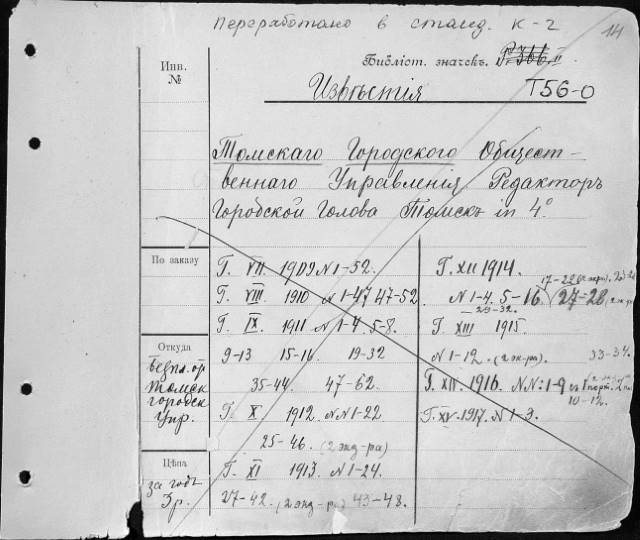 Переработано в станд. К-2
14
Инв. №
Библіот. значекъ. Р.366.II
Извѣстія
Т56-0
Томскаго Городского Общест-
веннаго Управленія. Редакторъ
Городской Голова Томскъ in 4°
По заказу
Г. VII 1909 N 1-52.
Г. VIII 1910 N 1-47 47-52
Г. IX 1911 N 1-4. 5-8.
Откуда
безпл. от
Томск
городск
Упр.
9-13 15-16. 19-32
35-44. 47-62.
Г. X 1912 N N 1-22
25-46. (2 экз-ра)
Цѣна
за годъ
3 р.
Г. XI 1913. N 1-24.
27-42. (2 экз-ра) 43-48.
Г. XII 1914.
17-22
N 1-4. 5-16. 27-28
29-32.
Г. XIII 1915.
N 1-12. (2 эк-ра). 33-34
Г. XIV. 1916. N N: 1-9
10-12.
Г. XV. 1917. N 1-3.